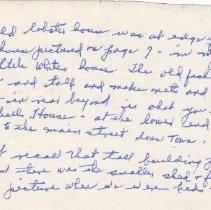 ld lobster house was at edge o
house pictured on page 7 - in
ttle White House. The old fish
- and tall and makes nets and
- in rear beyond is what you
House - at the lower end
to the main street down Town.
f recall that tall building
store was the smaller shed &
picture when we were kids